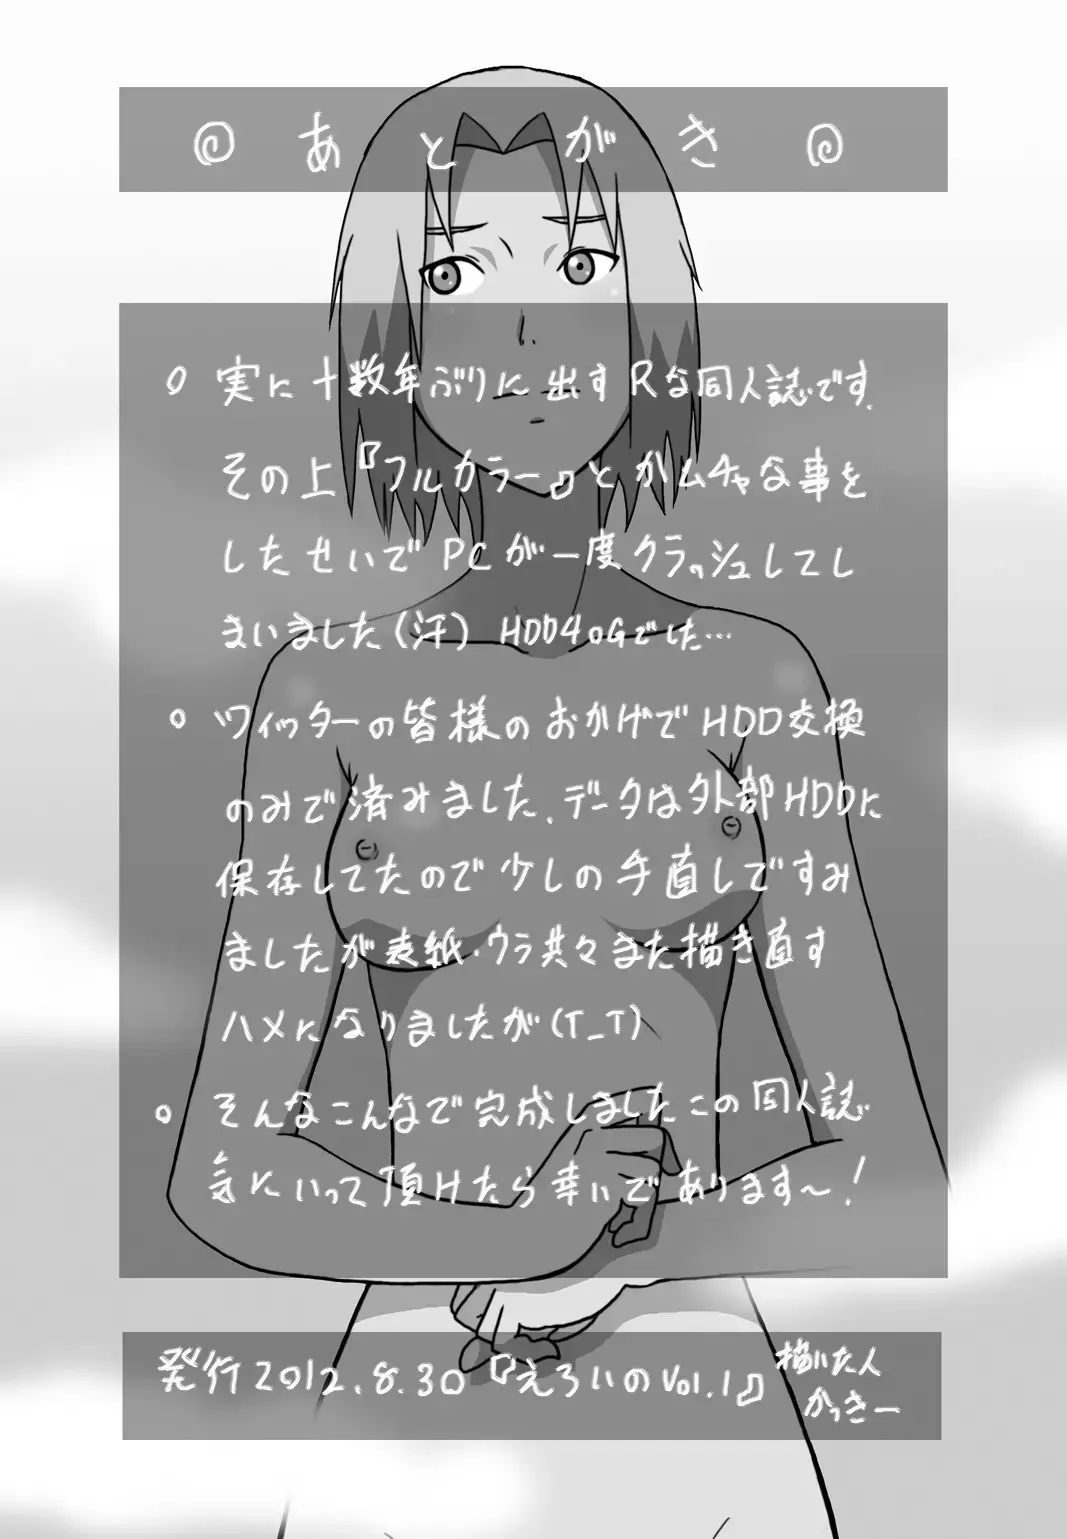 @ あとがき @
○ 実に十数年ぶりに出すRな同人誌です.
その上『フルカラー』とかムチャな事を
したせいでPCが一度クラッシュしてし
まいました(汗) HDD40Gでした…
○ ツイッターの皆様のおかげでHDD交換
のみで済みました.データは外部HDDに
保存してたので少しの手直しですみ
ましたが表紙・ウラ共々また描き直す
ハメになりましたが(T_T)
○ そんなこんなで完成しましたこの同人誌
気にいって頂けたら幸いであります〜!
発行2012.8.30『えろいのVol.1』
描いた人
かっきー